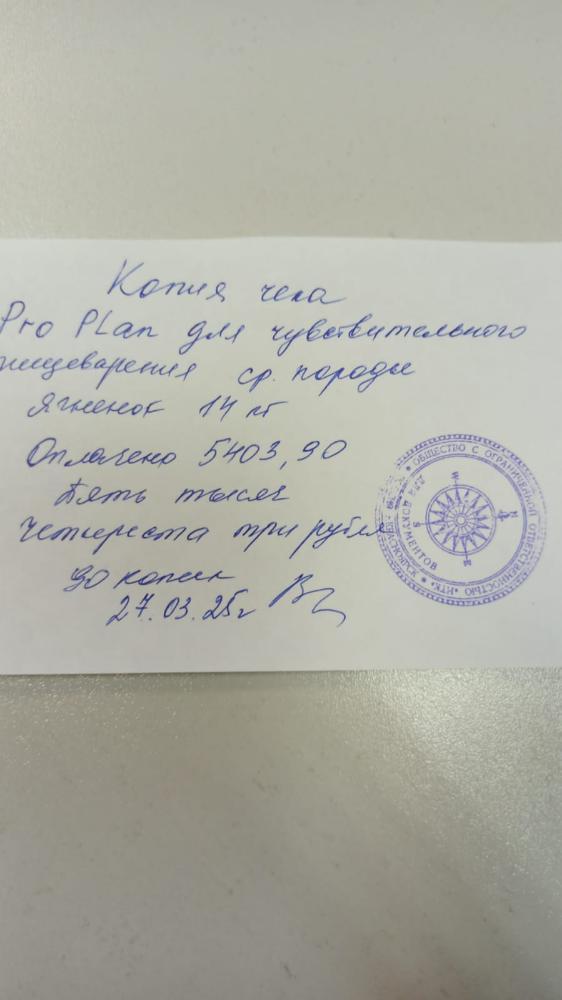 Копия чека
Pro Plan для чувствительного
пищеварения ср. породы
Ягненок 14 кг
Оплачено 5403,90
Пять тысяч
Четыреста три рубля
90 копеек
27.03.25г
ОБЩЕСТВО С ОГРАНИЧЕННОЙ ОТВЕТСТВЕННОСТЬЮ «КТК»
ДЛЯ ДОКУМЕНТОВ